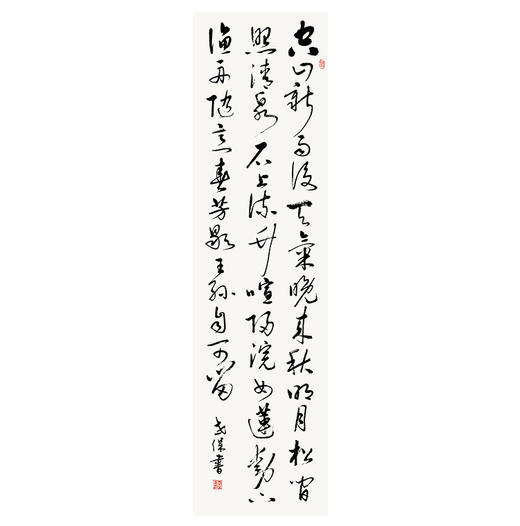 空山新雨後天氣晚来秋明月松間
照清泉石上流竹喧歸浣女蓮動下
漁舟随意春芳歇王孫自可留
保書